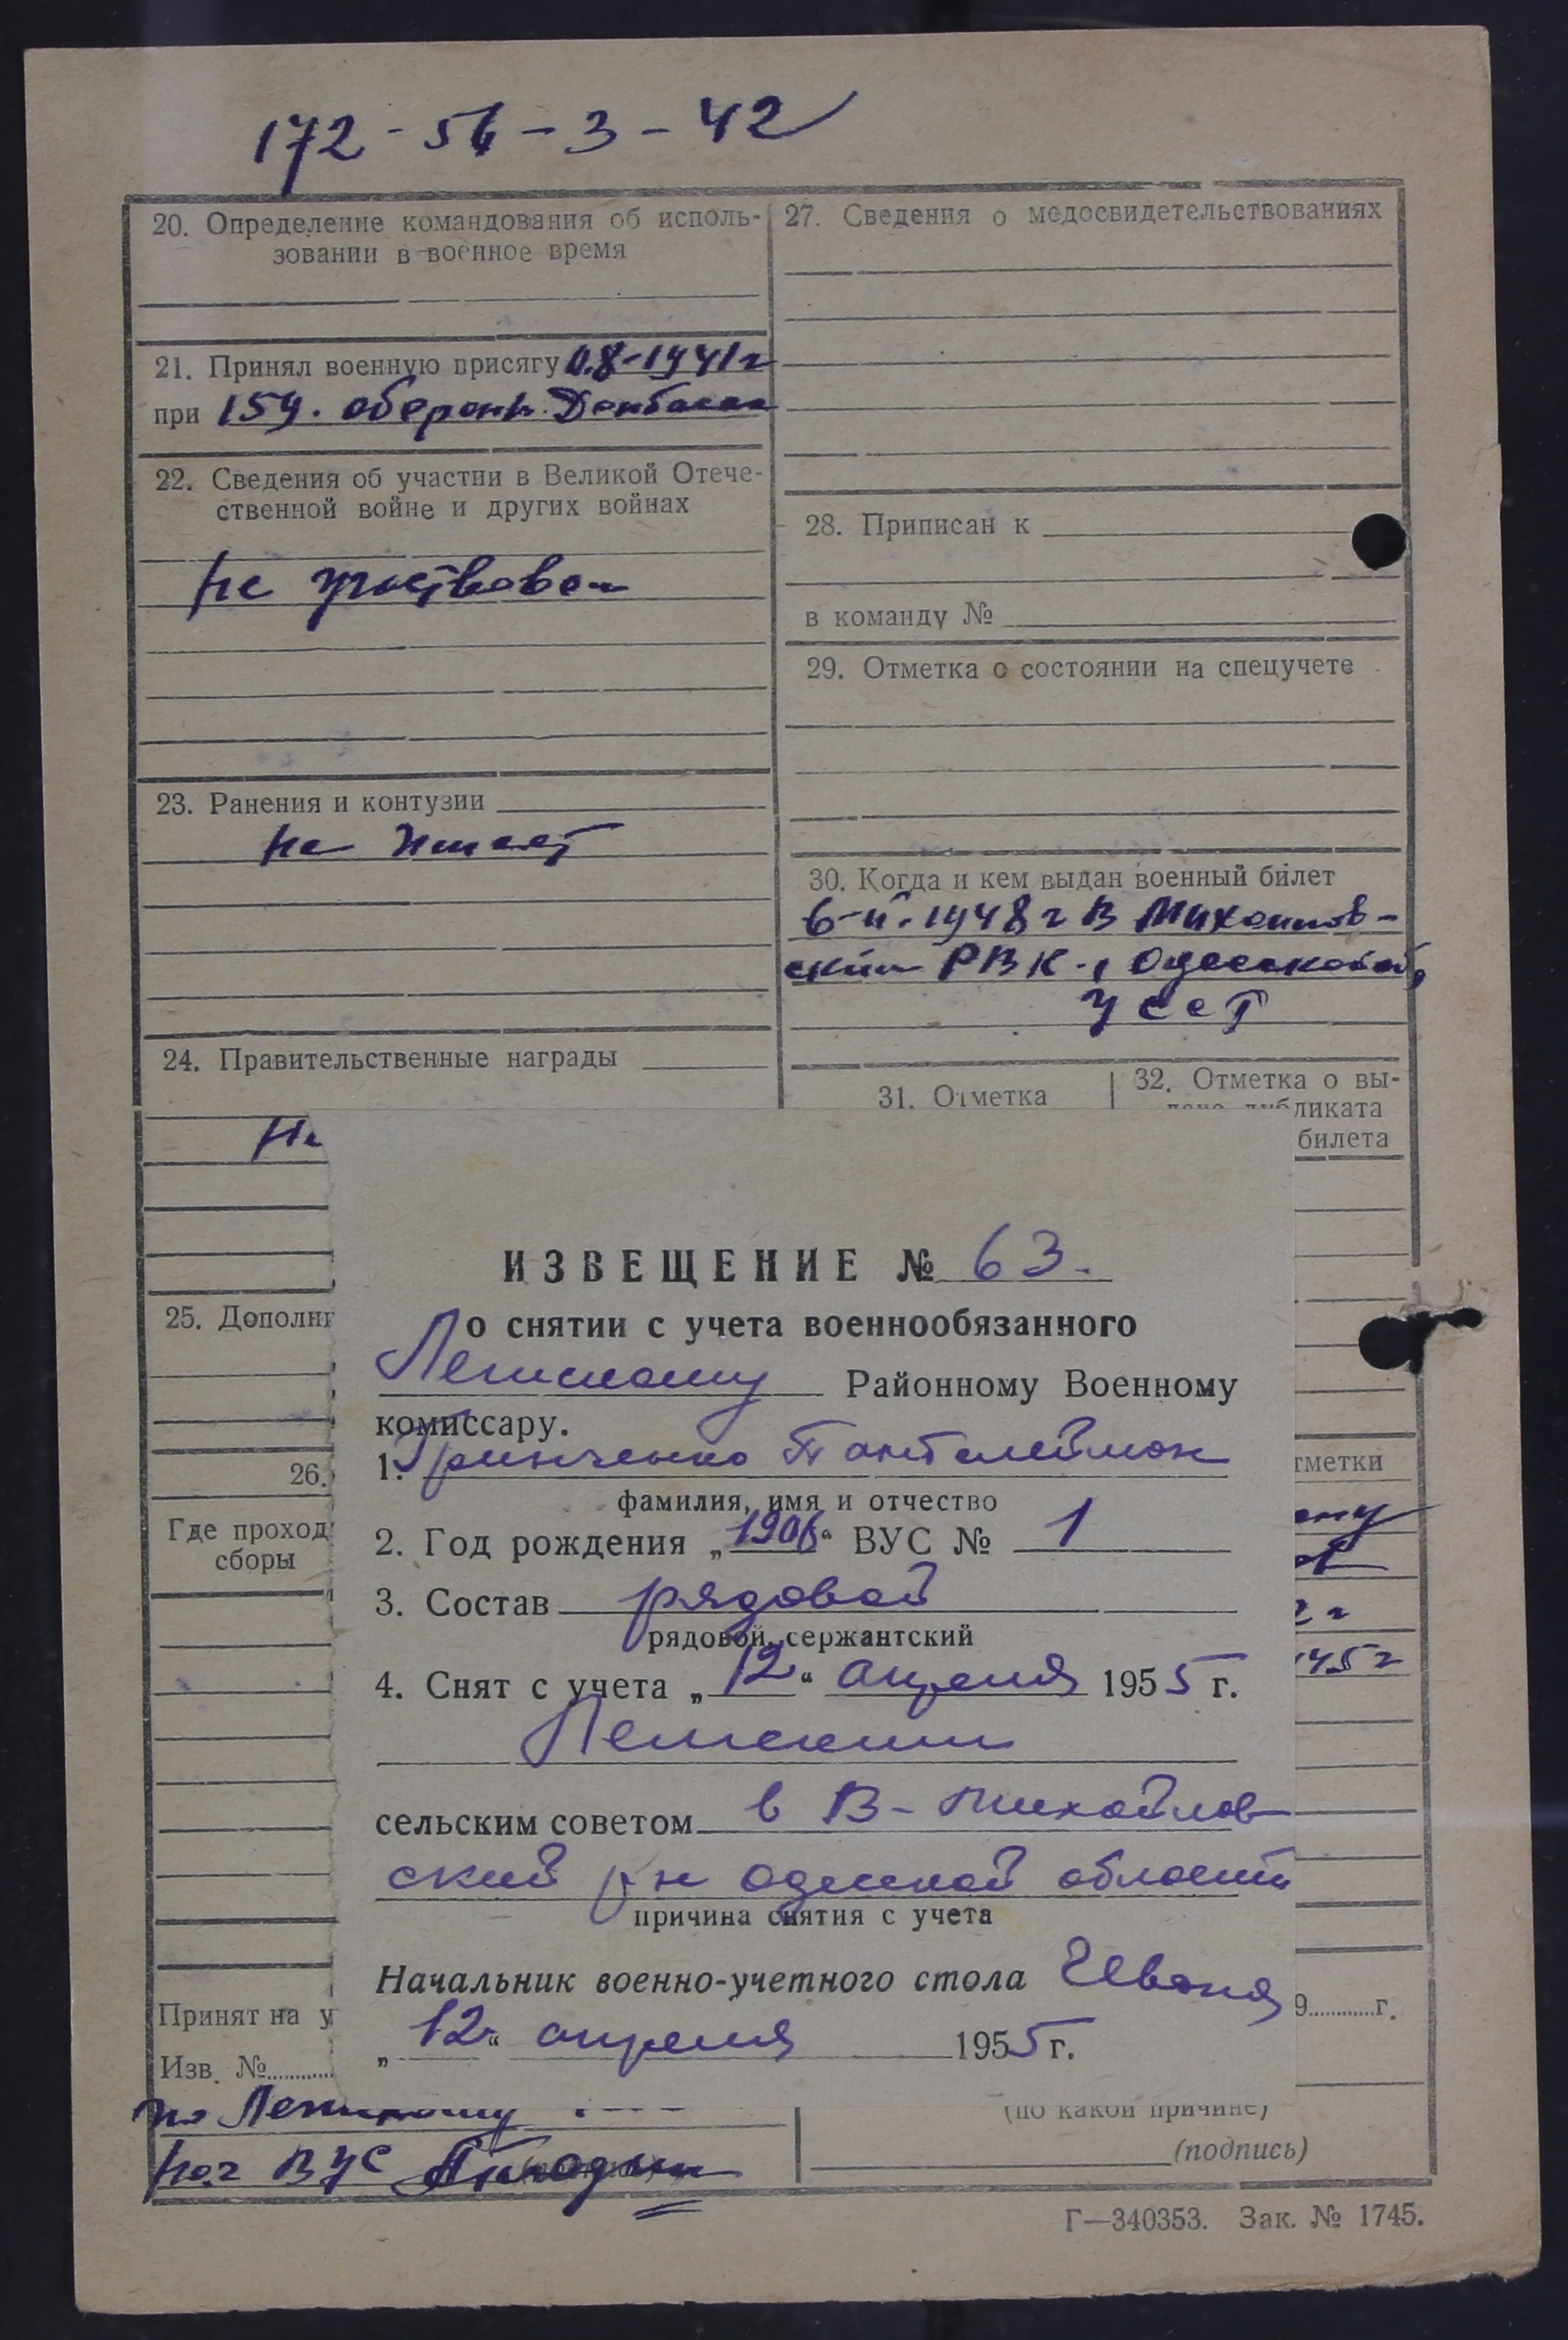 172-56-3-42
20. Определение командования об исполь-
зовании в военное время
21. Принял военную присягу 0.8-1941г
при 159. оборонт. Донбасса
22. Сведения об участии в Великой Отече-
ственной войне и других войнах
Не участвовал
23. Ранения и контузии
не имеет
24. Правительственные награды
Не
25. Дополни
26.
Где проход
сборы
Принят на у
Изв. №
по Ленинскому
Нач ВУС
27. Сведения о медосвидетельствованиях
28. Приписан к
в команду №
29. Отметка о состоянии на спецучете
30. Когда и кем выдан военный билет
6-II-1948г В Михайлов-
ским РВК.,
УССР
31. Отметка
32. Отметка о вы-
ликата
билета
тметки
2г
145г
9 г.
(по какой причине)
(подпись)
Г—340353. Зак. № 1745.
ИЗВЕЩЕНИЕ № 63.
о снятии с учета военнообязанного
Районному Военному
комиссару.
1. Гринченко Пантелеймон
фамилия, имя и отчество
2. Год рождения „1906“ ВУС № 1
3. Состав рядовой
рядовой, сержантский
4. Снят с учета „12“ апреля 1955 г.
сельским советом в В-Михайлов
ский р-н одесской области
причина снятия с учета
Начальник военно-учетного стола
„12“ апреля 1955 г.